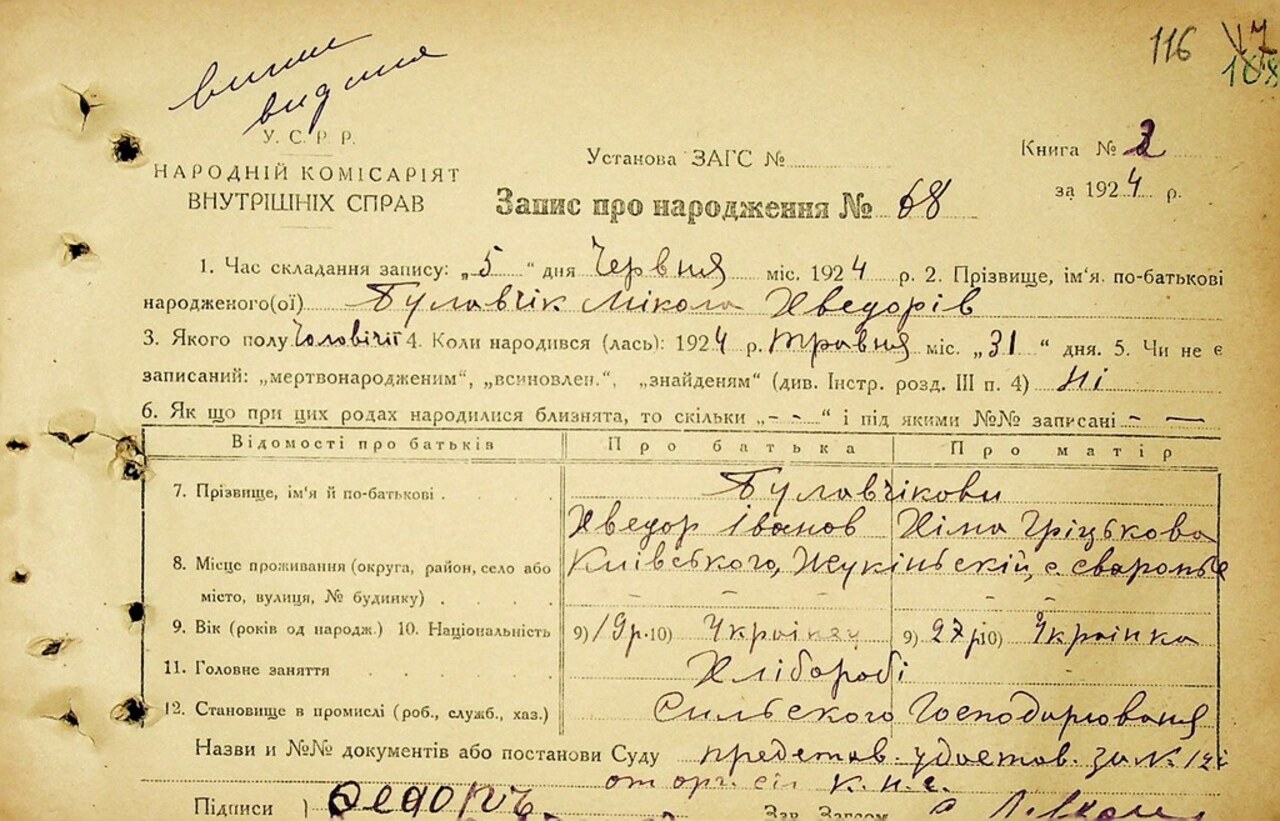 116 117
108
У. С. Р. Р.
НАРОДНІЙ КОМІСАРІЯТ
ВНУТРІШНІХ СПРАВ
Установа ЗАГС №
Книга № 2
за 1924 р.
Запис про народження № 68
1. Час складання запису: „5“ дня Червня міс. 1924 р. 2. Прізвище, ім'я. по-батькові
народженого(ої) Булавчік Мікола Хведорів
3. Якого полу Чоловічії 4. Коли народився (лась): 1924 р. травня міс. „31“ дня. 5. Чи не є
записаний: „мертвонародженим“, „всиновлен.“, „знайденям“ (див. Інстр. розд. III п. 4) Ні
6. Як що при цих родах народилися близнята, то скільки „- -“ і під якими №№ записані - —
Відомості про батьків Про батька Про матір
7. Прізвище, ім'я й по-батькові Булавчікови
Хведор Іванов Хіма Гріцькова
8. Місце проживання (округа, район, село або Київського, Жукіньскій, с.
місто, вулиця, № будинку)
9. Вік (років од народж.) 10. Національність 9) 19 р. 10) Украінец 9) 27 р 10) Украінка
11. Головне заняття Хлібороbі
12. Становище в промислі (роб., служб., хаз.) Сильского Господарюваня
Назви и №№ документів або постанови Суду предстов. удостов. за №
от орг. К.Н.С.
Підписи )
Зав. Загсом